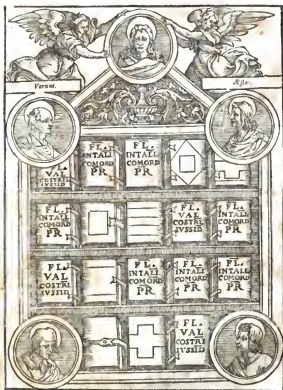 Vernus.
Æstas.
FL.
INTALL
COMORD
PR
FL.
INTALL
COMORD
PR
FL.
VAL
COSTRI
IVSSID
FL.
INTALL
COMORD
PR
FL.
INTALL
COMORD
PR
FL.
VAL
COSTRI
IVSSID
FL.
INTALL
COMORD
PR
FL.
VAL
COSTRI
IVSSID
FL.
INTALL
COMORD
PR
FL.
INTALL
COMORD
PR
FL.
INTALL
COMORD
PR
FL.
VAL
COSTRI
IVSSID